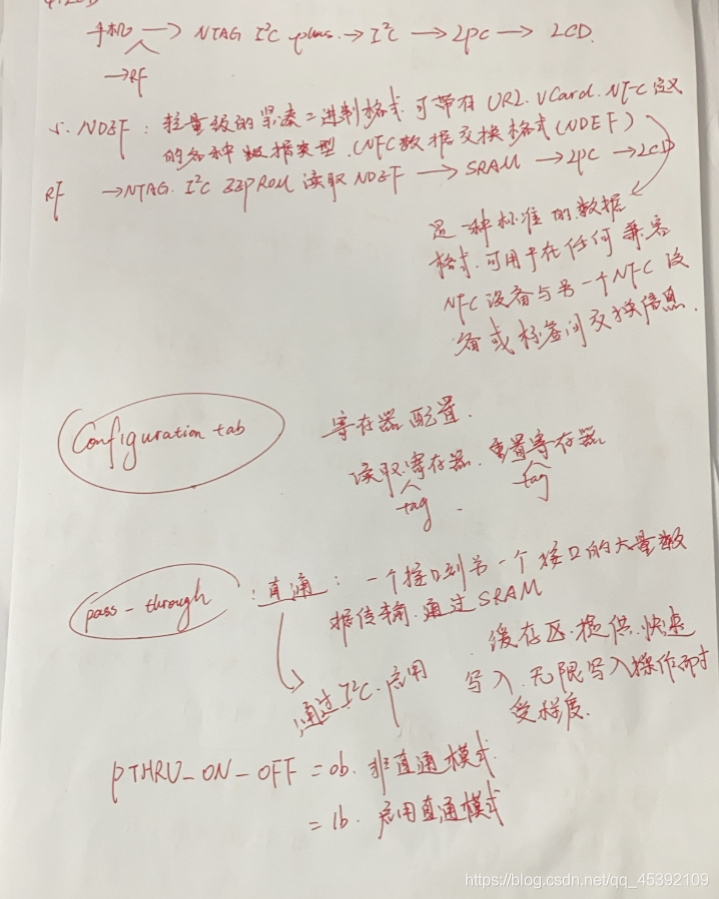 手机 → NTAG I²C plus → I²C → LPC → LCD.
→RF
5. NDEF: 轻量级的紧凑二进制格式. 可带有 URL. vCard. NFC定义
的各种数据类型. (NFC数据交换格式(NDEF)
RF →NTAG. I²C EEPROM 读取NDEF → SRAM → LPC → LCD
是一种标准的数据
格式. 可用于在任何兼容
NFC设备与另一个NFC设
备或标签间交换信息.
Configuration tab
寄存器配置.
读取寄存器. 重置寄存器
tag. tag
pass-through : 直通: 一个接口到另一个接口的大量数
据传输. 通过SRAM
缓存区. 提供快速
写入. 无限写入操作耐
受程度.
通过I²C. 启用
PTHRU_ON_OFF = 0b. 非直通模式.
= 1b. 启用直通模式
https://blog.csdn.net/qq_45392109